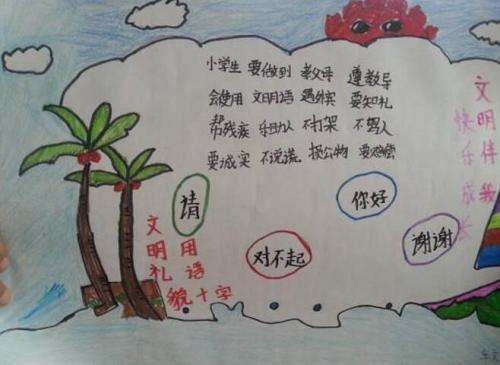 小学生 要做到 敬父母 遵教导
会使用 文明用语 遇外宾 要知礼
帮残疾 乐助人 不打架 不骂人
要诚实 不说谎 损公物 要赔偿
文明伴我
快乐成长
请
你好
对不起
谢谢
文明用语
礼貌十字